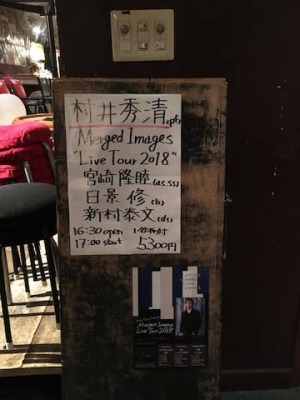 村井秀清(pf)
Merged Images
"Live Tour 2018"
宮崎隆睦(as.ss)
日景 修(b)
新村泰文(ds)
16:30 open
17:00 start
5300円
Merged Images
Live Tour 2018